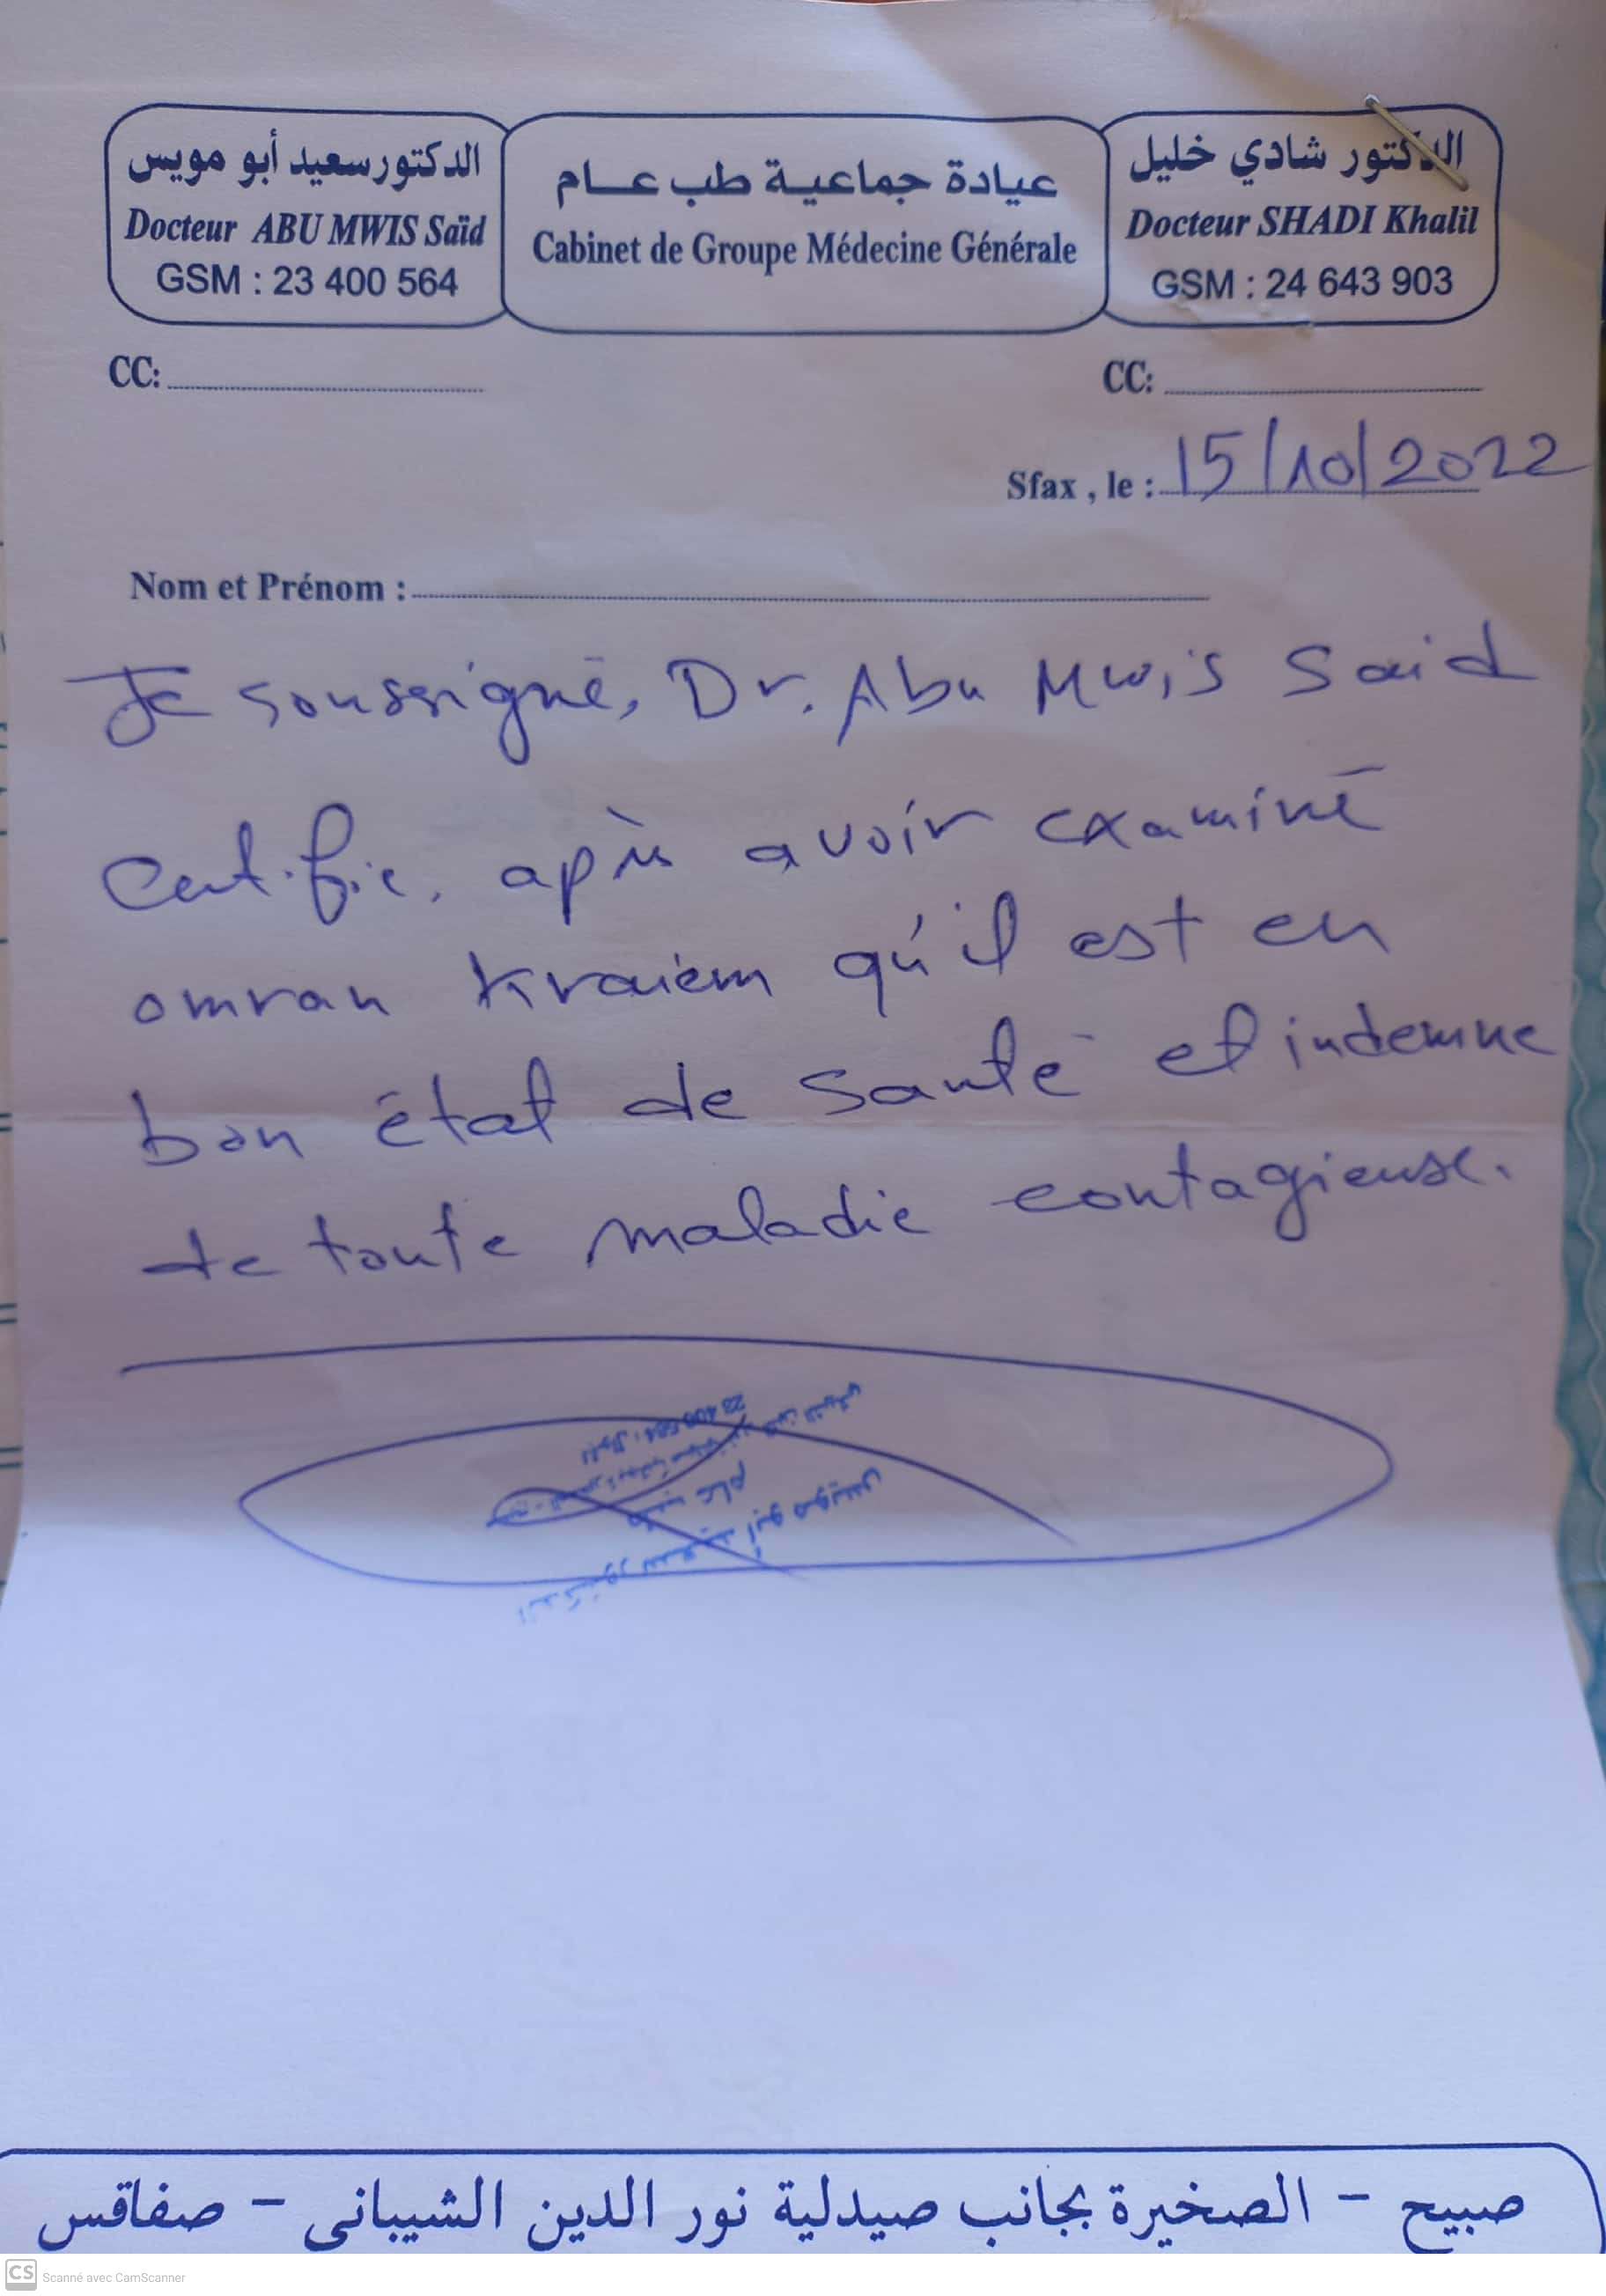 الدكتور سعيد أبو مويس
Docteur ABU MWIS Saïd
GSM : 23 400 564
عيادة جماعية طب عام
Cabinet de Groupe Médecine Générale
الدكتور شادي خليل
Docteur SHADI Khalil
GSM : 24 643 903
CC:
CC:
Sfax , le : 15/10/2022
Nom et Prénom :
Je soussigné, Dr. Abu Mwis Said
certifie, après avoir examiné
omran Kraiem qu'il est en
bon état de santé et indemne
de toute maladie contagieuse.
الدكتور سعيد أبو مويس
طب عام
23 400 564
صبيح - الصخيرة بجانب صيدلية نور الدين الشيباني - صفاقس
CS Scanné avec CamScanner